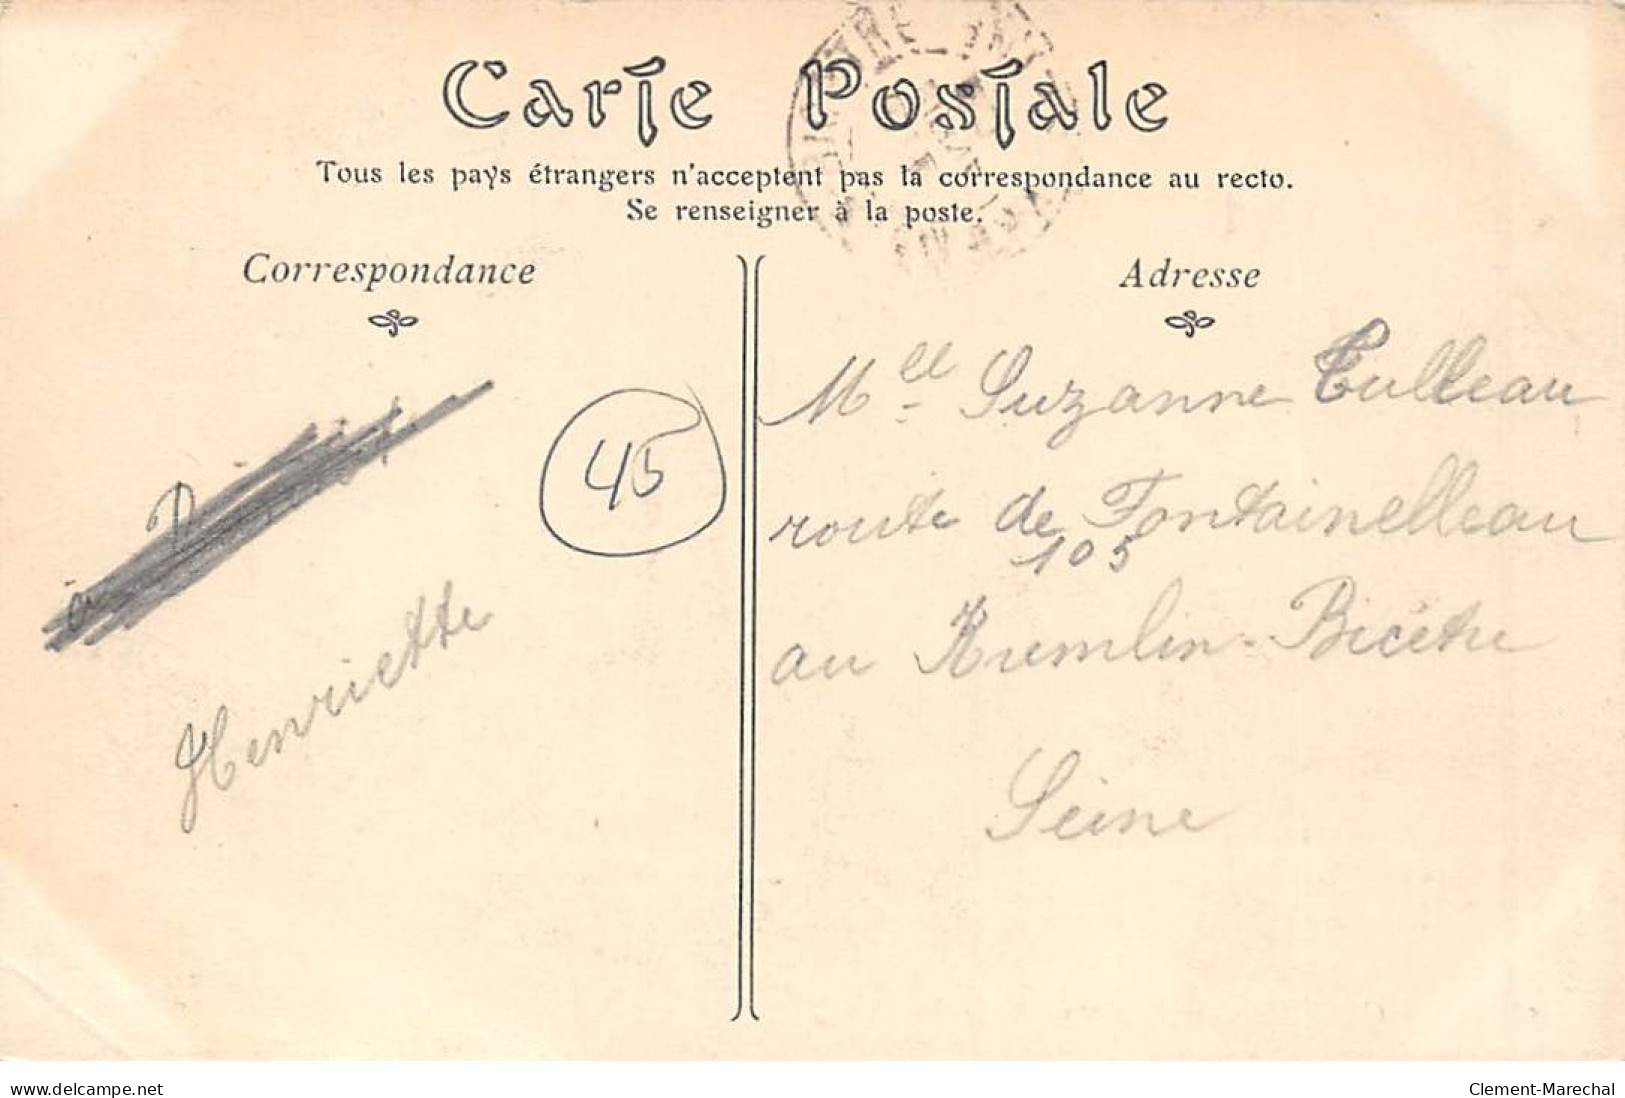 Carte Postale
Tous les pays étrangers n'acceptent pas la correspondance au recto.
Se renseigner à la poste.
Correspondance
Adresse
45
Henriette
Mlle Suzanne Tulleau
route de Fontainelleau
105
au Kremlin-Bicêtre
Seine
www.delcampe.net
Clement-Marechal